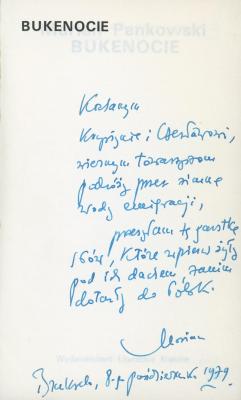 BUKENOCIE
Marian Pankowski
BUKENOCIE
Kochanym
Krystynie i Czesławowi,
wiernym towarzyszom
podróży przez zimne
wody emigracji,
przesyłam tę garstkę
słów, które wpierw żyły
pod ich dachem, zanim
dotarły do Polski.
Marian
Bruksela, 8-go października 1979
Wydawnictwo Literackie Kraków